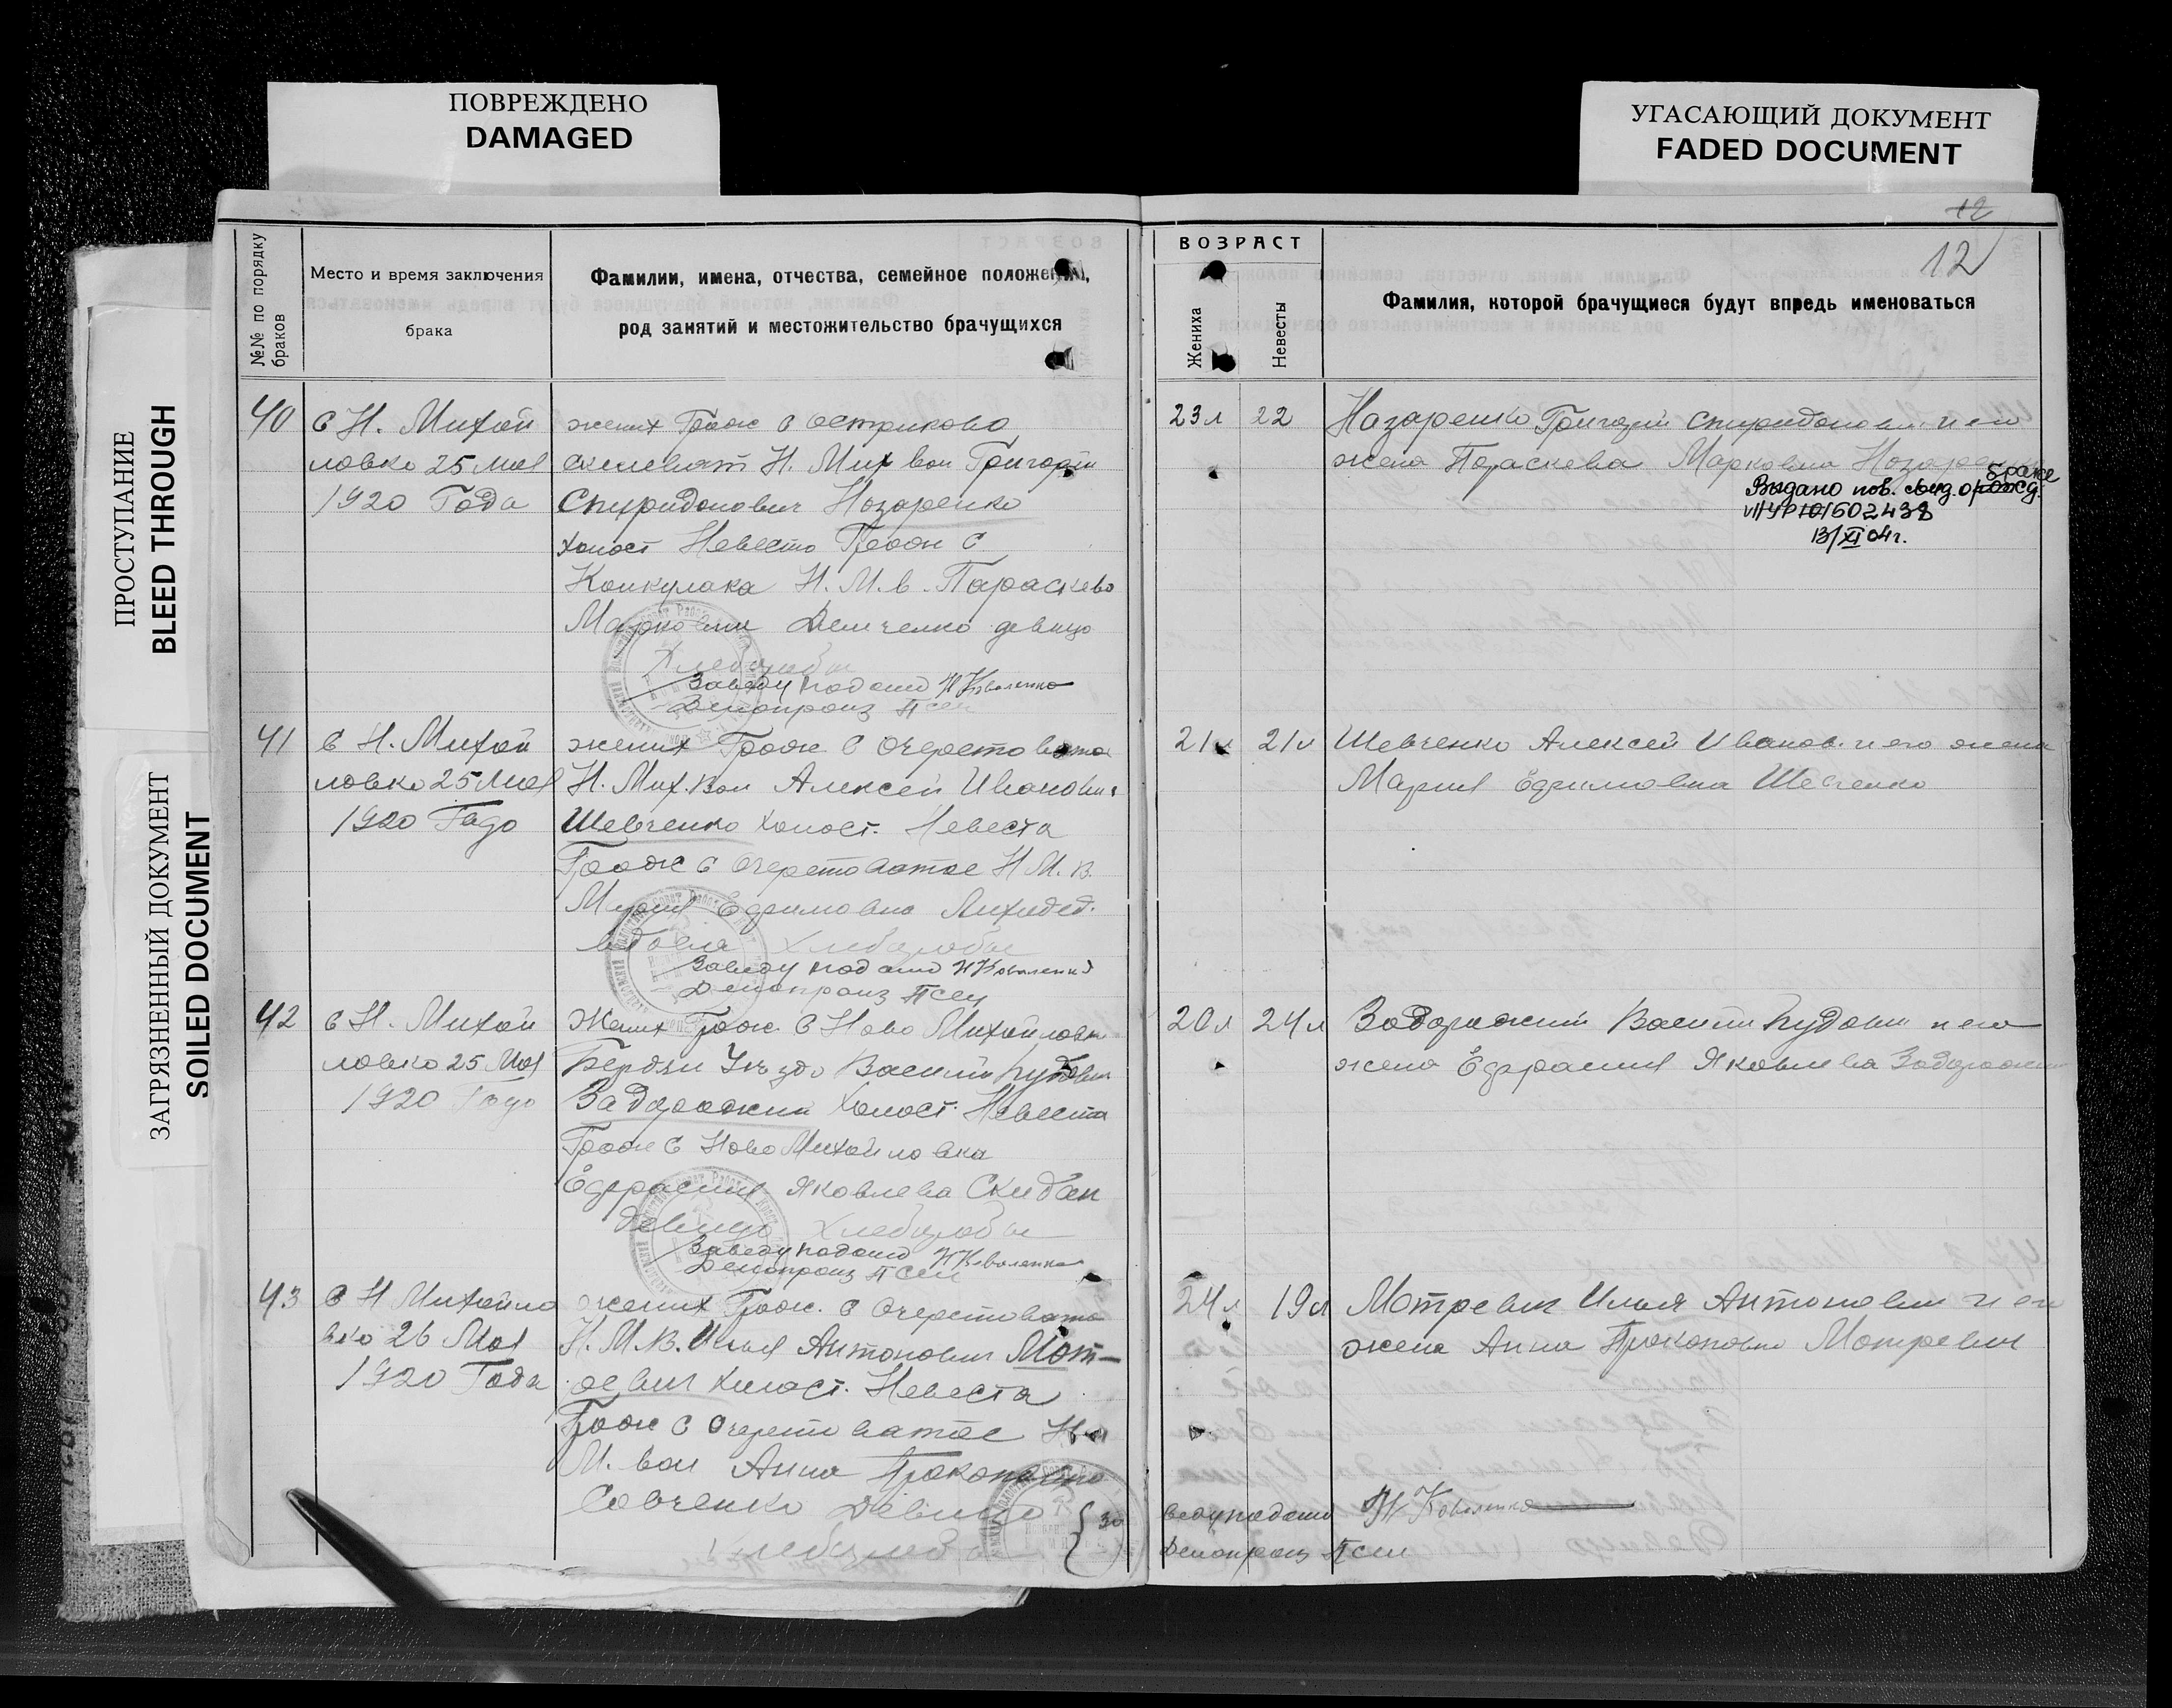 ПОВРЕЖДЕНО
DAMAGED
УГАСАЮЩИЙ ДОКУМЕНТ
FADED DOCUMENT
ПРОСТУПАНИЕ
BLEED THROUGH
ЗАГРЯЗНЕННЫЙ ДОКУМЕНТ
SOILED DOCUMENT
12
12
№№ по порядку браков
Место и время заключения брака
Фамилии, имена, отчества, семейное положение,
род занятий и местожительство брачущихся
ВОЗРАСТ
Жениха
Невесты
Фамилия, которой брачущиеся будут впредь именоваться
40
с Н. Михай
ловка 25 Мая
1920 Года
жених Гражд с
Н. Мих вол Григорий
Спиридонович Назаренко
холост Невеста Гражд с
Н. М. в. Параскева
Марковна Демченко девица
Хлеборобы
Заведу подотд Н Коваленко
Делопроиз
23 л
22
Назаренко Григорий Спиридонович и его
жена Параскева Марковна Назаренко
браке
Выдано пов. свид. о рожд.
602438
13/XI 04г.
41
с Н. Михай
ловка 25 Мая
1920 Года
жених Гражд с Очеретовата
Н. Мих. вол Алексей Иванович
Шевченко холост. Невеста
Гражд с Очеретоватое Н М. В.
Мария Ефимовна
вдова Хлеборобы
Заведу подотд Н Коваленко
Делопроиз
21 л
21 л
Шевченко Алексей Иванов. и его жена
Мария Ефимовна Шевченко
42
с Н. Михай
ловка 25 Мая
1920 Года
Жених Гражд с Ново Михайловки
Бердян Уезда Василий
Задорожний Холост. Невеста
Гражд с Ново Михайловка
Ефрасия Яковлева Скидан
девица Хлеборобы
Заведу подотд Н Коваленко
Делопроиз
20 л
24 л
Задорожний Василий и его
жена Ефрасия Яковлева Задорожня
43
с Н Михайло
вка 26 Мая
1920 Года
жених Гражд. с Очеретовата
Н. М. В. Илья Антонович Мот-
ревич холост. Невеста
Гражд с Очеретоватое Н
М. вол Анна Прокоповна
Савченко Девица
Хлеборобы
24 л
19 л
Мотревич Илья Антонович и его
жена Анна Прокоповна Мотревич
Заведу подотд Н Коваленко
Делопроиз